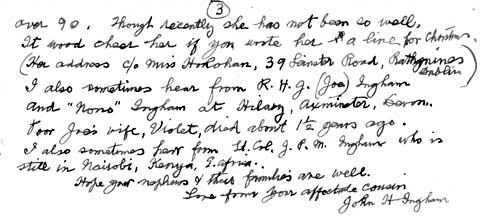 3
over 90. Though recently she has not been so well.
It wood cheer her if you wrote her a line for Christmas.
(Her address c/o Miss Holohan, 39 Leinster Road, Rathmines Dublin)
I also sometimes hear from R. H. G. (Joe) Ingham
and "Nono" Ingham at Hilary, Axminster, Devon.
Poor Joe's wife, Violet, died about 1½ years ago.
I also sometimes hear from Lt. Col. J. P. M. Ingham who is
still in Nairobi, Kenya, E. Africa.
Hope your nephews & their families are well.
Love from Your affectate cousin
John H Ingham